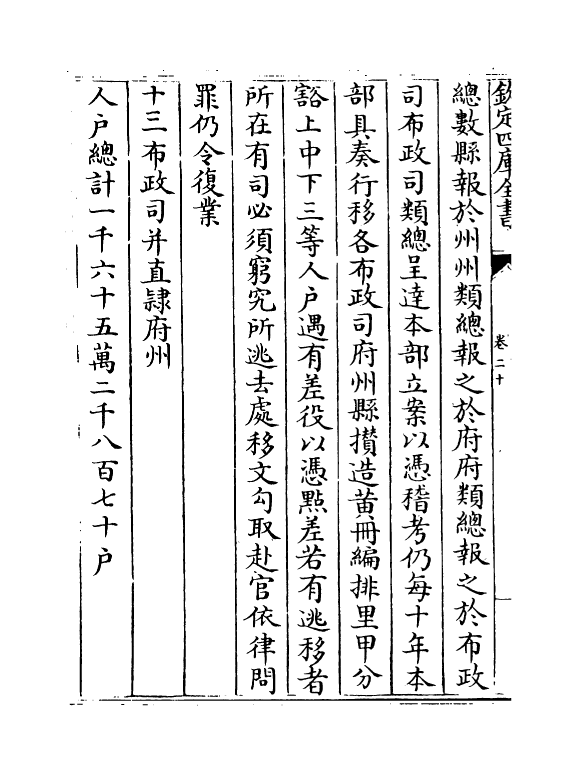 欽定四庫全書
卷二十
總數縣報於州州類總報之於府府類總報之於布政
司布政司類總呈達本部立案以憑稽考仍每十年本
部具奏行移各布政司府州縣攢造黃冊編排里甲分
豁上中下三等人户遇有差役以憑點差若有逃移者
所在有司必須窮究所逃去處移文勾取赴官依律問
罪仍令復業
十三布政司并直隷府州
人户總計一千六十五萬二千八百七十户